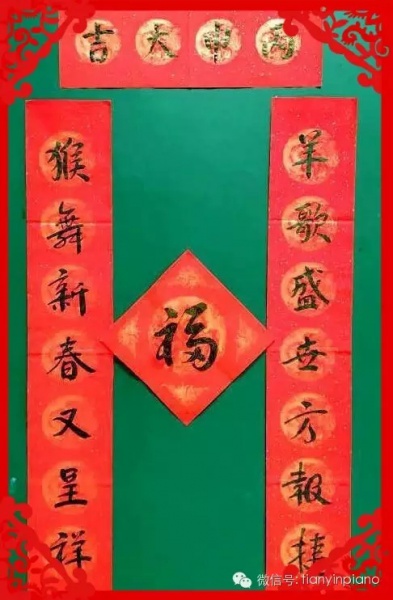 丙申大吉
羊歌盛世方報捷
猴舞新春又呈祥
福
微信号: tianyinpiano